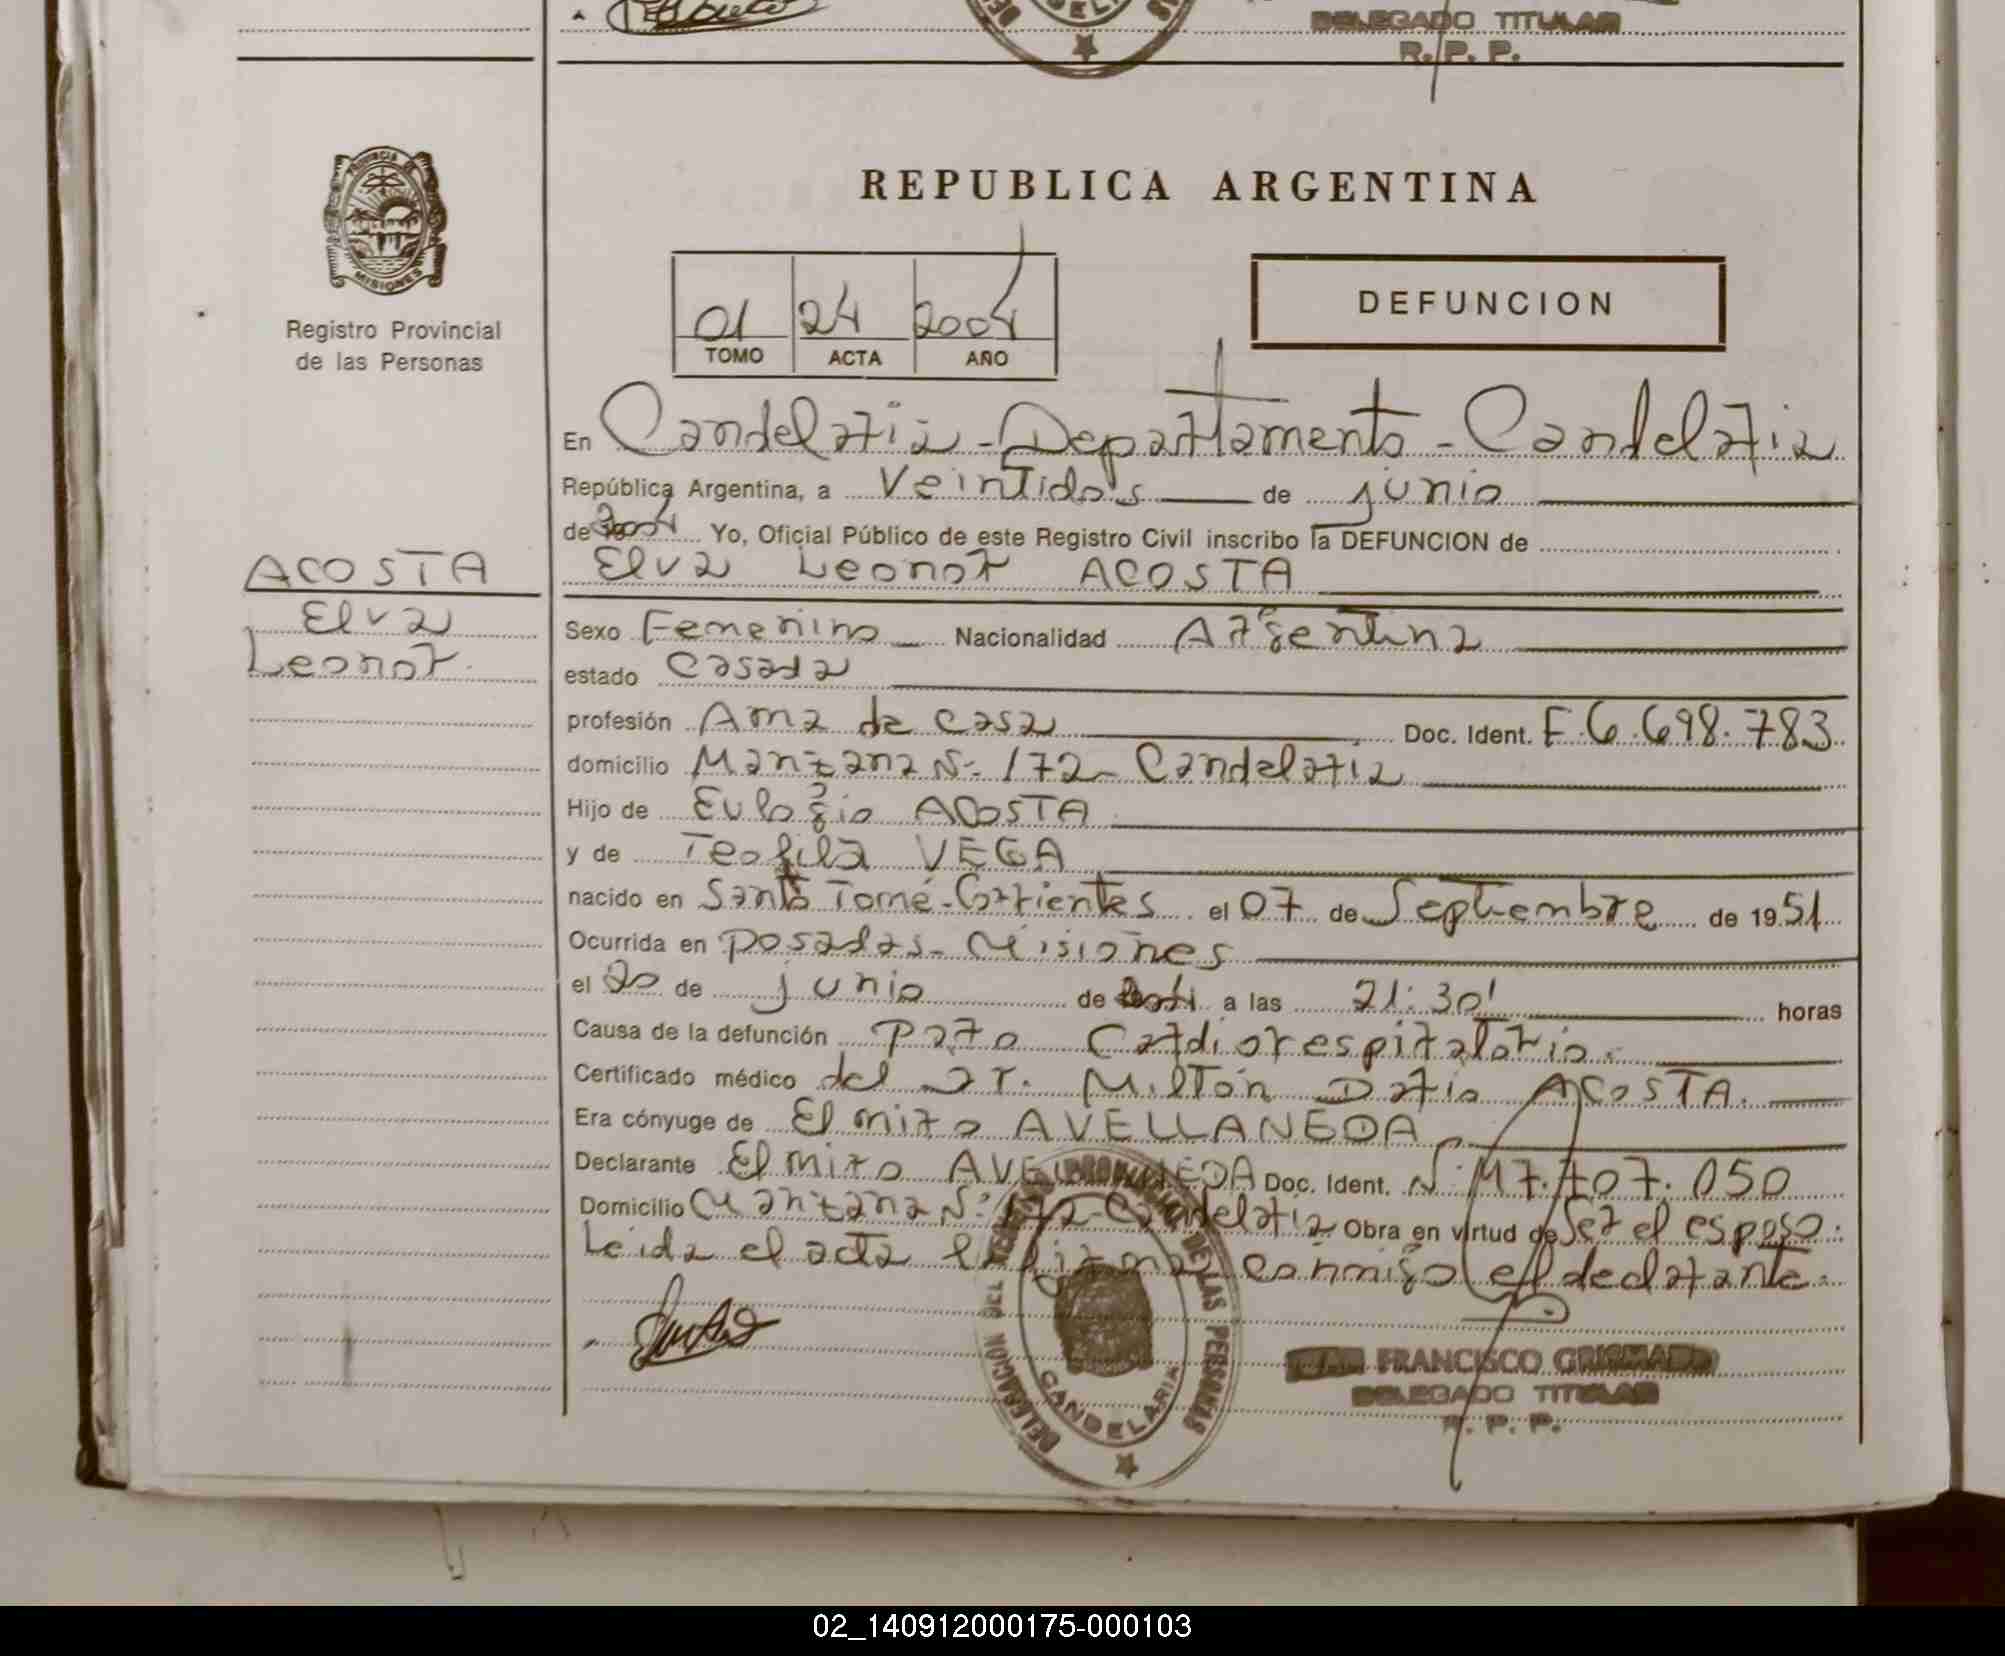 DELEGADO TITULAR
R. P. P.
PROVINCIA DE
MISIONES
Registro Provincial
de las Personas
REPUBLICA ARGENTINA
01 24 2004
TOMO ACTA AÑO
DEFUNCION
En Candelaria - Departamento - Candelaria
República Argentina, a Veintidós de junio
de 2004 Yo, Oficial Público de este Registro Civil inscribo la DEFUNCION de
Elva Leonor ACOSTA
ACOSTA
Elva
Leonor.
Sexo Femenino Nacionalidad Argentina
estado Casada
profesión Ama de casa Doc. Ident. F.6.698.783
domicilio Manzana Nº 172 - Candelaria
Hijo de Eulogio ACOSTA
y de Teofila VEGA
nacido en Santo Tomé - Corrientes el 07 de Septiembre de 1951
Ocurrida en Posadas - Misiones
el 20 de junio de 2004 a las 21:30' horas
Causa de la defunción Paro Cardiorespiratorio.
Certificado médico del Dr. Milton Dario ACOSTA.
Era cónyuge de Elmiro AVELLANEDA
Declarante Elmiro AVELLANEDA Doc. Ident. Nº M7.707.050
Domicilio Manzana Nº 172 - Candelaria Obra en virtud de Ser el esposo.
Leida el acta la firma conmigo el declarante.
DELEGACION DEL REGISTRO PROVINCIAL DE LAS PERSONAS
CANDELARIA
FRANCISCO
DELEGADO TITULAR
R. P. P.
02_140912000175-000103